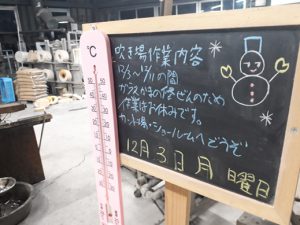 吹き場作業内容
12/3〜12/11の間
ガラスがまの修ぜんのため
作業はお休みです。
カット場・ショールームへどうぞ
12月3日月曜日
℃
50
40
30
20
10
0
10
20
30